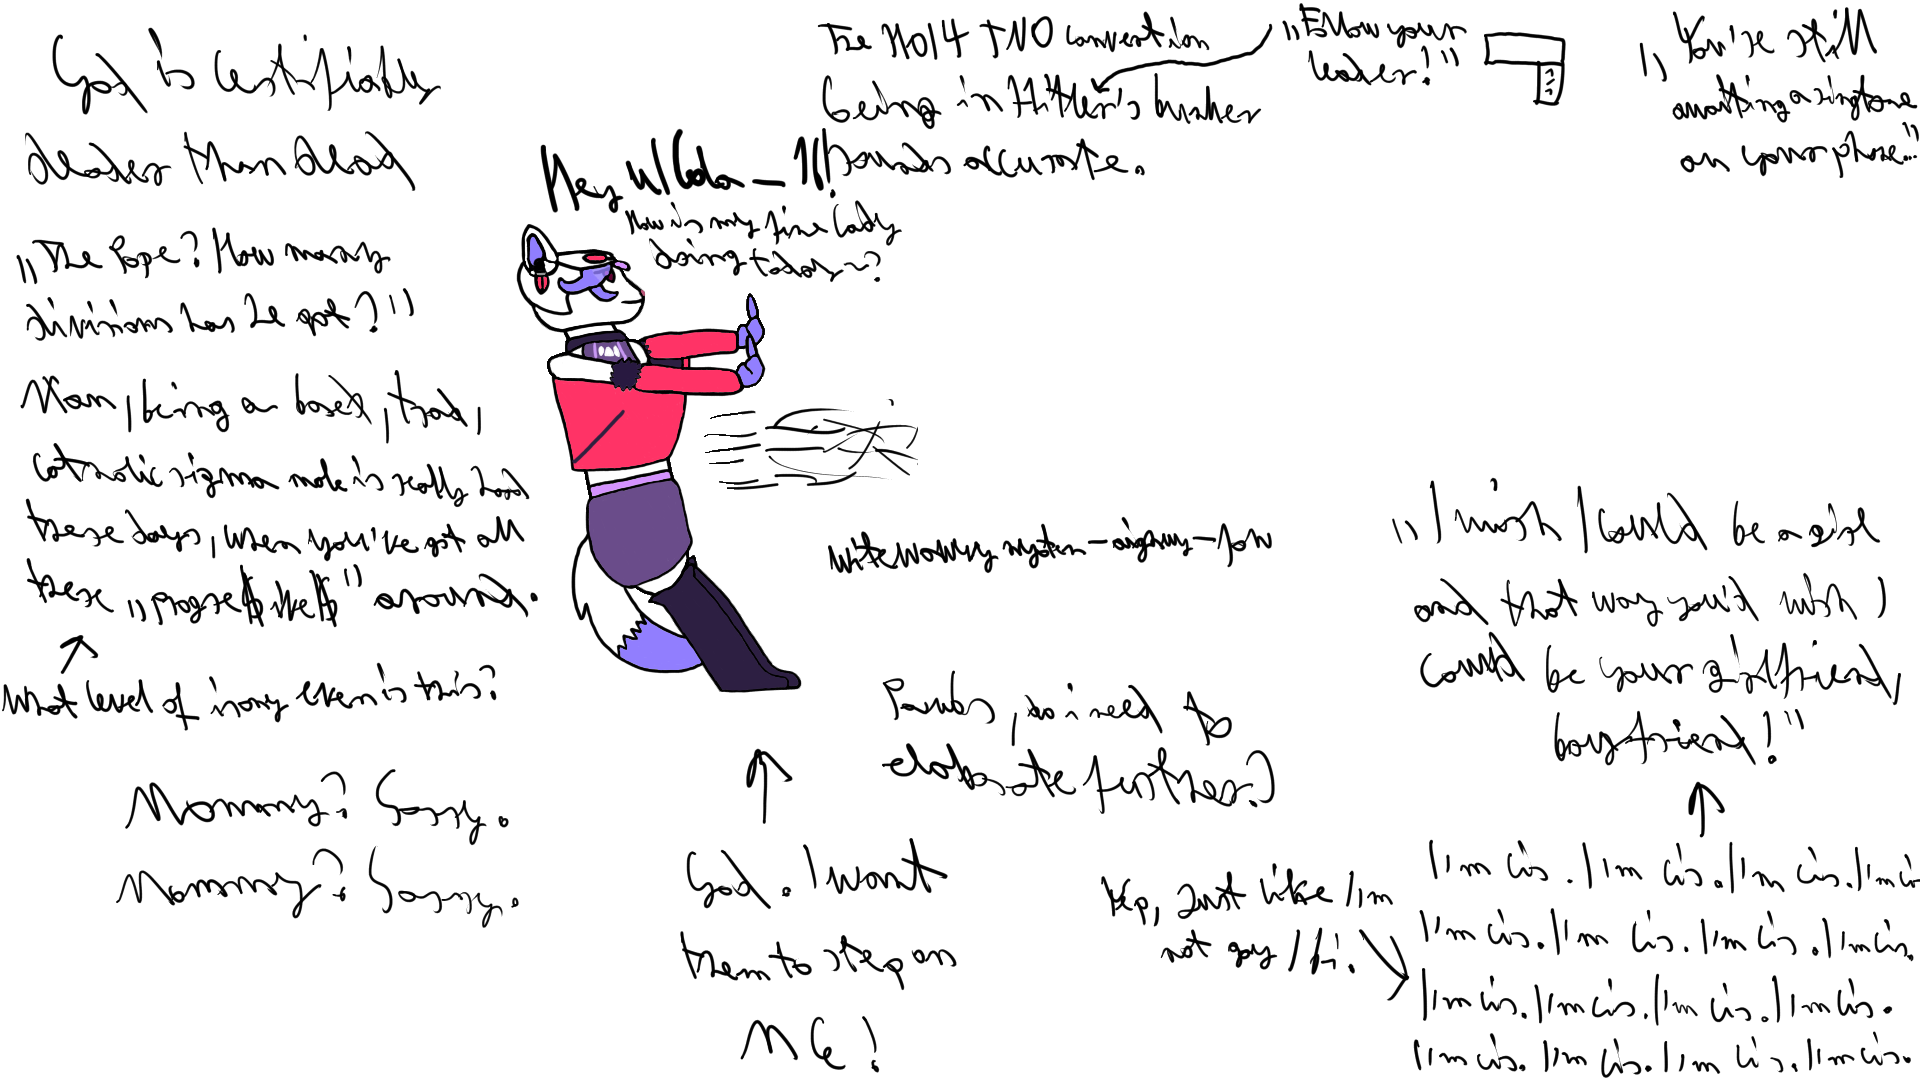 God is certifiably
deader than dead
"The Pope? How many
divisions has he got?"
Man, being a based, trad,
catholic sigma male is really hard
these days, when you've got all
these "progre$$ike$" around.
What level of irony even is this?
Mommy? Sorry.
Mommy? Sorry.
Hey u/Coda_-_16!
How is my fine lady
doing today~?
The HOI4 TNO convention
being in Hitler's bunker
sounds accurate.
"Follow your
leader!"
"You're still
awaiting a ringtone
on your phone..."
God. I want
them to step on
ME!
Pambs, do i need to
elaborate further?
"I wish I could be a girl
and that way you'd wish I
could be your girlfriend,
boyfriend!"
Yep, Just like I'm
not gay / bi.
I'm cis. I'm cis. I'm cis. I'm cis
I'm cis. I'm cis. I'm cis. I'm cis.
I'm cis. I'm cis. I'm cis. I'm cis.
I'm cis. I'm cis. I'm cis. I'm cis.